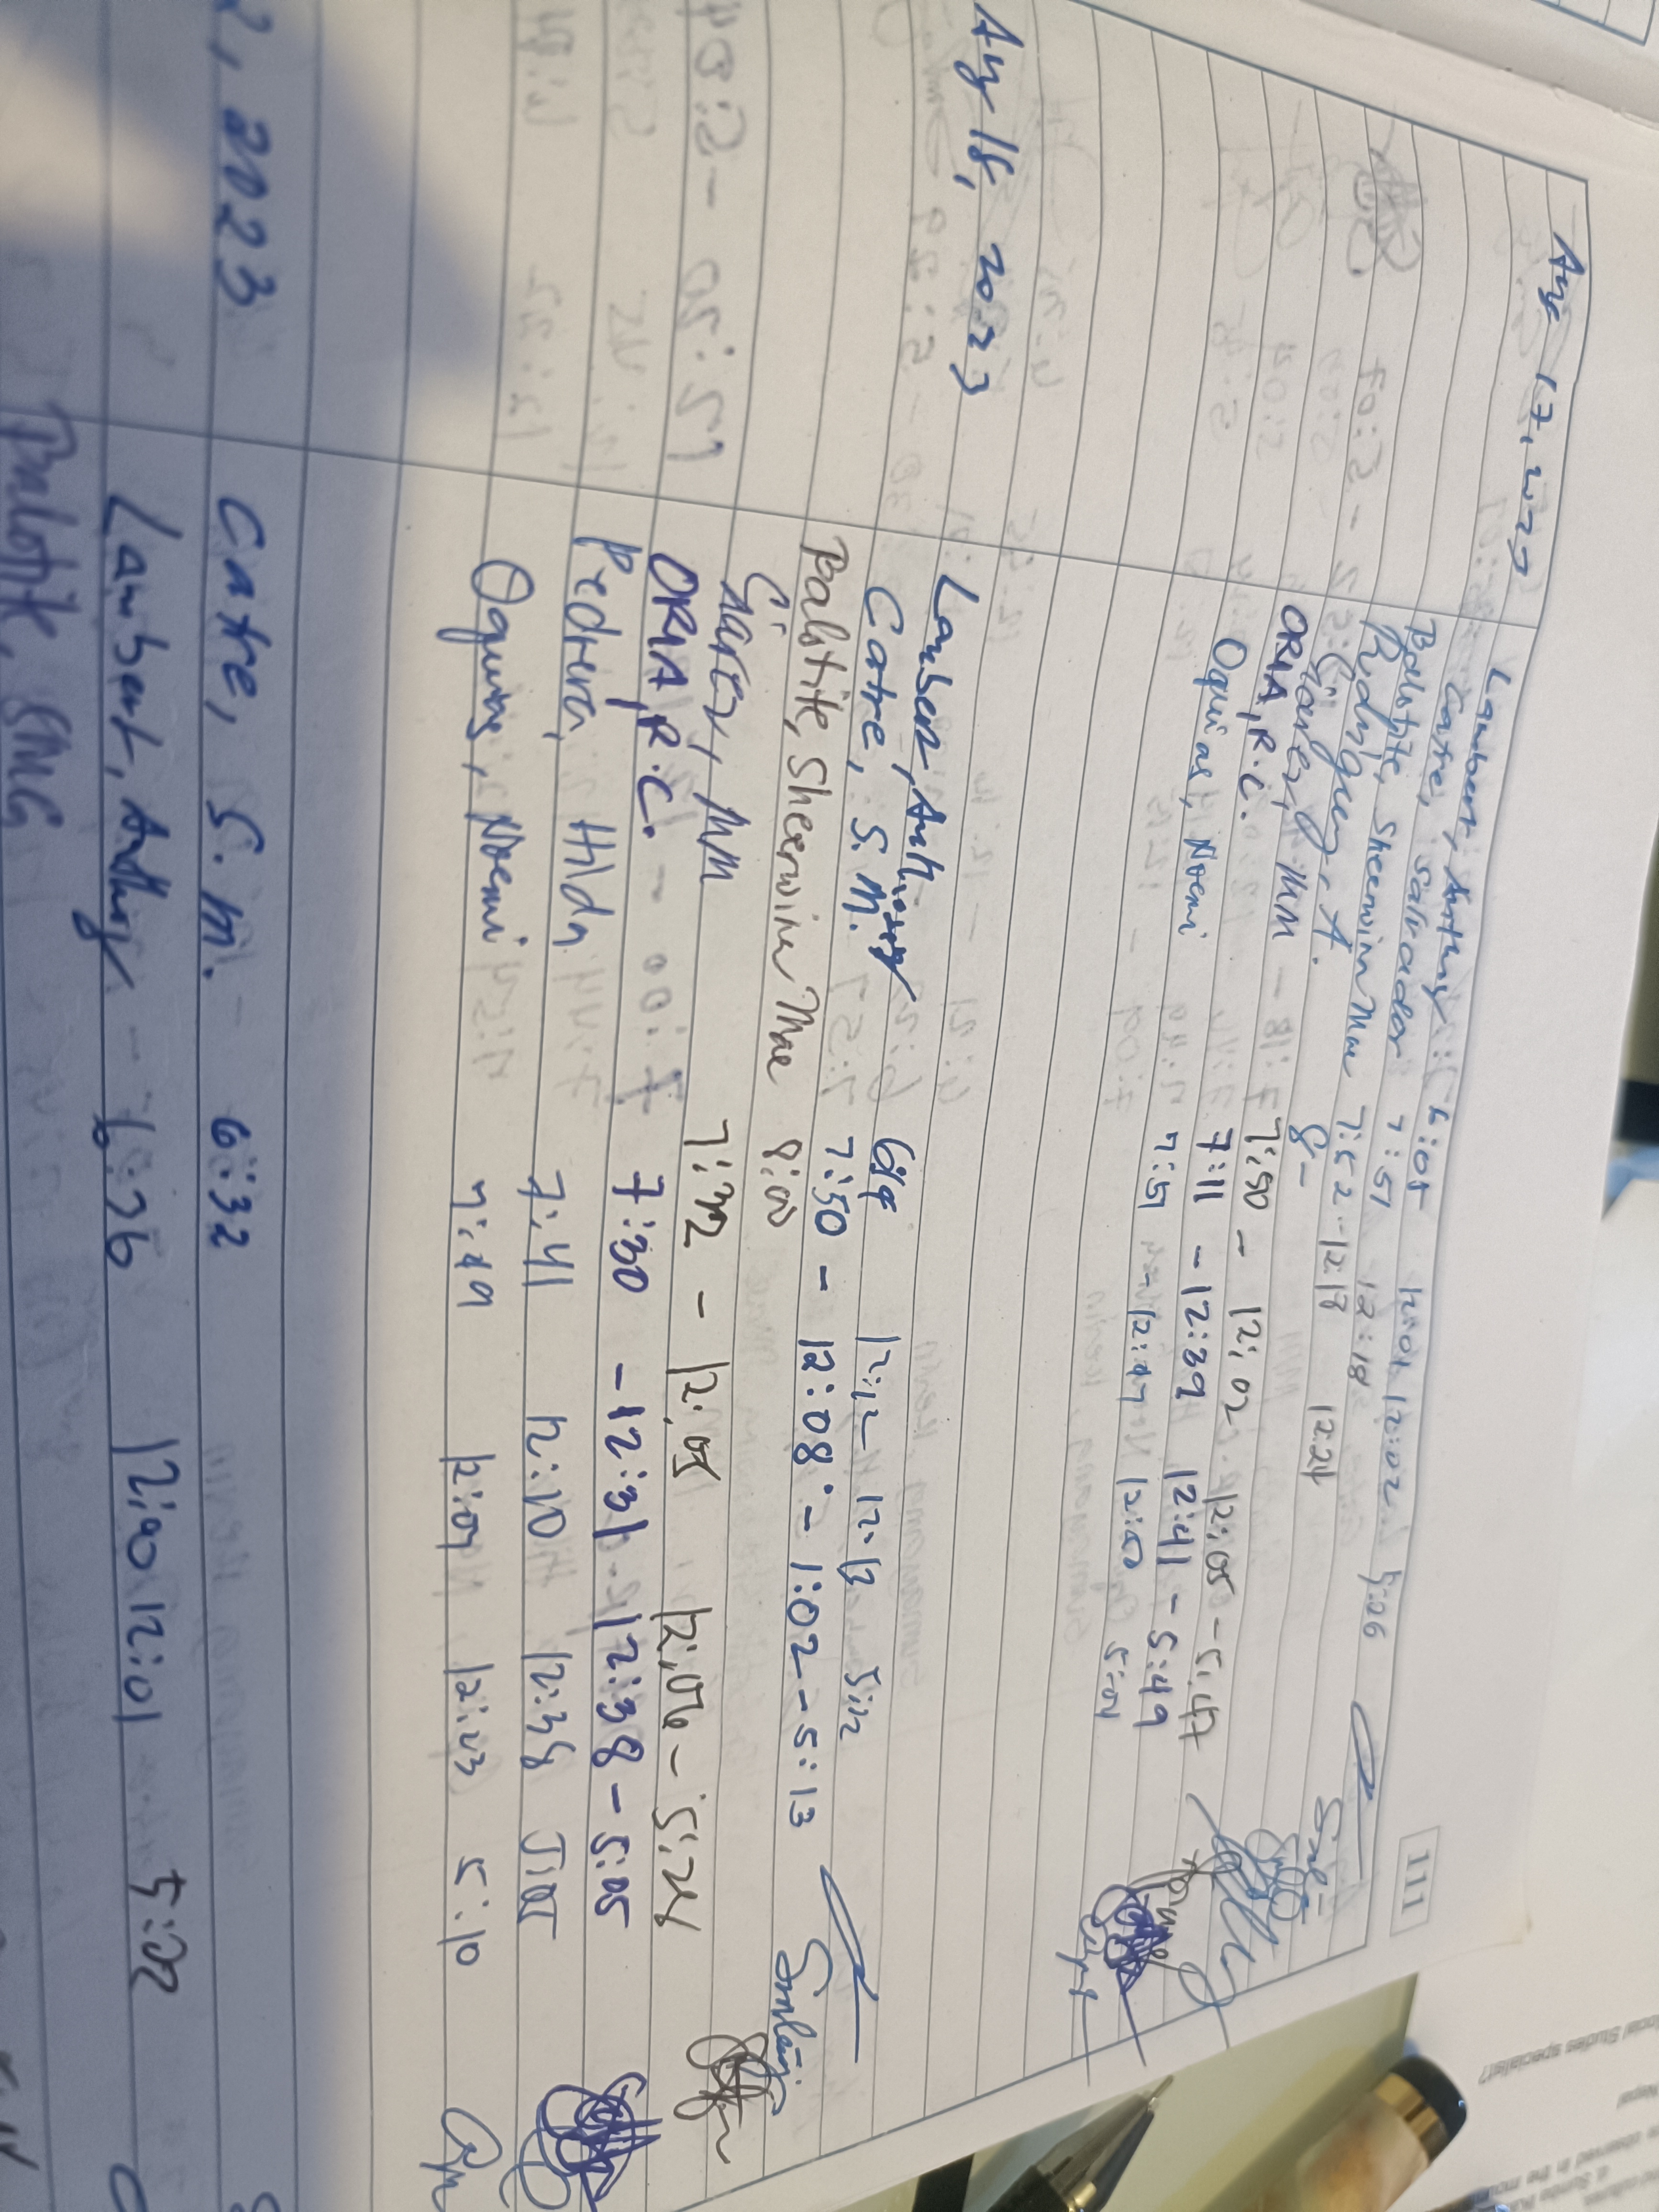 111
Aug 17, 2023
Lambert, Anthony 6:05 12:01 12:02 5:06
Catre, Salvador 7:51 12:18
Balotite, Sheerwin Mae 7:52 - 12:18
Rodriguez, A. 8- 12:21
Giarez, MM 7:50 - 12:02 12:05 - 5:47
ORIA, R.C. 7:11 - 12:39 12:41 - 5:49
Oquias, Noemi 7:51 12:47 12:50 5:01
Aug 18, 2023
Lambert, Anthony 12:12 12:13 5:12
Catre, S.M. 7:50 - 12:08 - 1:02 - 5:13
Balotite, Sheerwin Mae 8:00
Giarez, MM 7:32 - 12:05 12:06 - 5:26
ORIA, R.C. 7:30 - 12:31 12:38 - 5:05
Pedrera, Hilda 7:41 12:10 12:38 5:05
Oquias, Noemi 7:49 12:09 12:13 5:10
2, 2023
Catre, S.M. 6:32
Lambert, Anthony - 6:36 12:00 12:01 5:02
Balotite, SMG
Social Studies specialist?